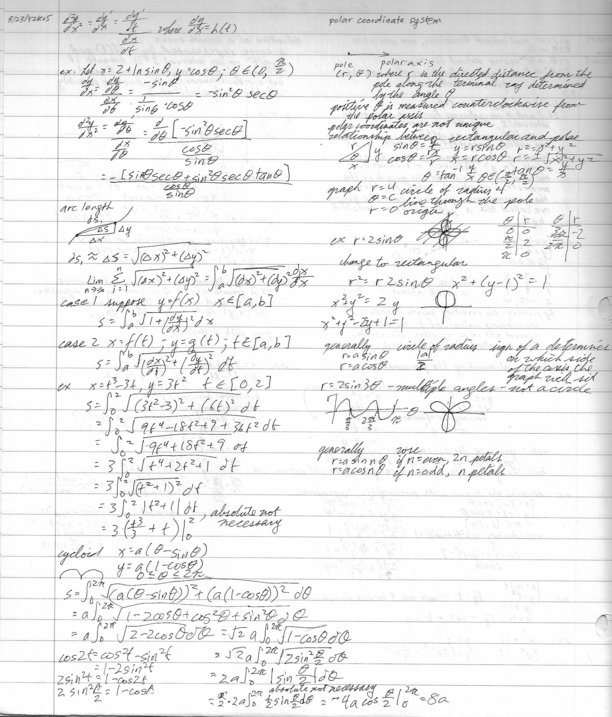 d²y/dx² = dy'/dx = (dy'/dt)/(dx/dt) where dy/dx = h(t)
ex: let x = 2 + ln sinθ, y = cosθ; θ ∈ (0, π/2)
dy/dx = (dy/dθ)/(dx/dθ) = -sinθ/(1/sinθ · cosθ) = -sin²θ secθ
d²y/dx² = (dy'/dθ)/(dx/dθ) = d/dθ[-sin²θ secθ]/(cosθ/sinθ)
= -[sinθ secθ + sin²θ secθ tanθ]/(cosθ/sinθ)
arc length
ds,
Δs Δy
Δx
ds, ≈ Δs = √((Δx)² + (Δy)²)
Lim n→∞ Σ i=1 n √((Δx)² + (Δy)²) = ∫ₐᵇ √((dx)² + (dy)²) dx/dx
case 1 suppose y = f(x) x ∈ [a,b]
s = ∫ₐᵇ √(1 + (dy/dx)²) dx
case 2 x = f(t); y = g(t); t ∈ [a,b]
s = ∫ₐᵇ √((dx/dt)² + (dy/dt)²) dt
ex x = t³-3t, y = 3t² t ∈ [0,2]
s = ∫₀² √((3t²-3)² + (6t)²) dt
= ∫₀² √(9t⁴ - 18t² + 9 + 36t²) dt
= ∫₀² √(9t⁴ + 18t² + 9) dt
= 3∫₀² √(t⁴ + 2t² + 1) dt
= 3∫₀² √((t² + 1)²) dt
= 3∫₀² |t² + 1| dt, absolute not necessary
= 3(t³/3 + t)|₀²
cycloid x = a(θ - sinθ)
y = a(1 - cosθ)
0 ≤ θ ≤ 2π
s = ∫₀²π √((a(θ - sinθ))² + (a(1 - cosθ))²) dθ
= a∫₀²π √(1 - 2cosθ + cos²θ + sin²θ) dθ
= a∫₀²π √(2 - 2cosθ) dθ = √2 a∫₀²π √(1 - cosθ) dθ
cos2t = cos²t - sin²t
= 1 - 2sin²t
2sin²t = 1 - cos2t
2sin² θ/2 = 1 - cosθ
= √2 a∫₀²π √(2sin² θ/2) dθ
= 2a∫₀²π |sin θ/2| dθ
absolute not necessary
= 2/2 · 2a∫₀²π ½ sin θ/2 dθ = -4a cos θ/2 |₀²π = 8a
polar coordinate system
pole polar axis
(r, θ) where r is the directed distance from the
pole along the terminal ray determined
by the angle θ
positive θ is measured counterclockwise from
the polar axis
polar coordinates are not unique
relationship between rectangular and polar
r y sinθ = y/r y = r sinθ r² = x² + y²
θ x cosθ = x/r x = r cosθ r = ±√(x² + y²)
θ = tan⁻¹ y/x θ ∈ (-π/2, π/2) tanθ = y/x
graph r = 4 circle of radius 4
θ = c line through the pole
r = 0 origin
ex r = 2sinθ
θ r θ r
0 0 3π/2 -2
π/2 2 2π 0
π 0
change to rectangular
r² = r2sinθ x² + (y-1)² = 1
x² + y² = 2y
x² + y² - 2y + 1 = 1
generally circle of radius sign of a determines
r = a sinθ |a|/2 on which side
r = a cosθ of the axis the
graph will sit
r = 2sin3θ - multiple angles - not a circle
π/3 2π/3 π θ
generally rose
r = a sin nθ if n = even, 2n petals
r = a cos nθ if n = odd, n petals